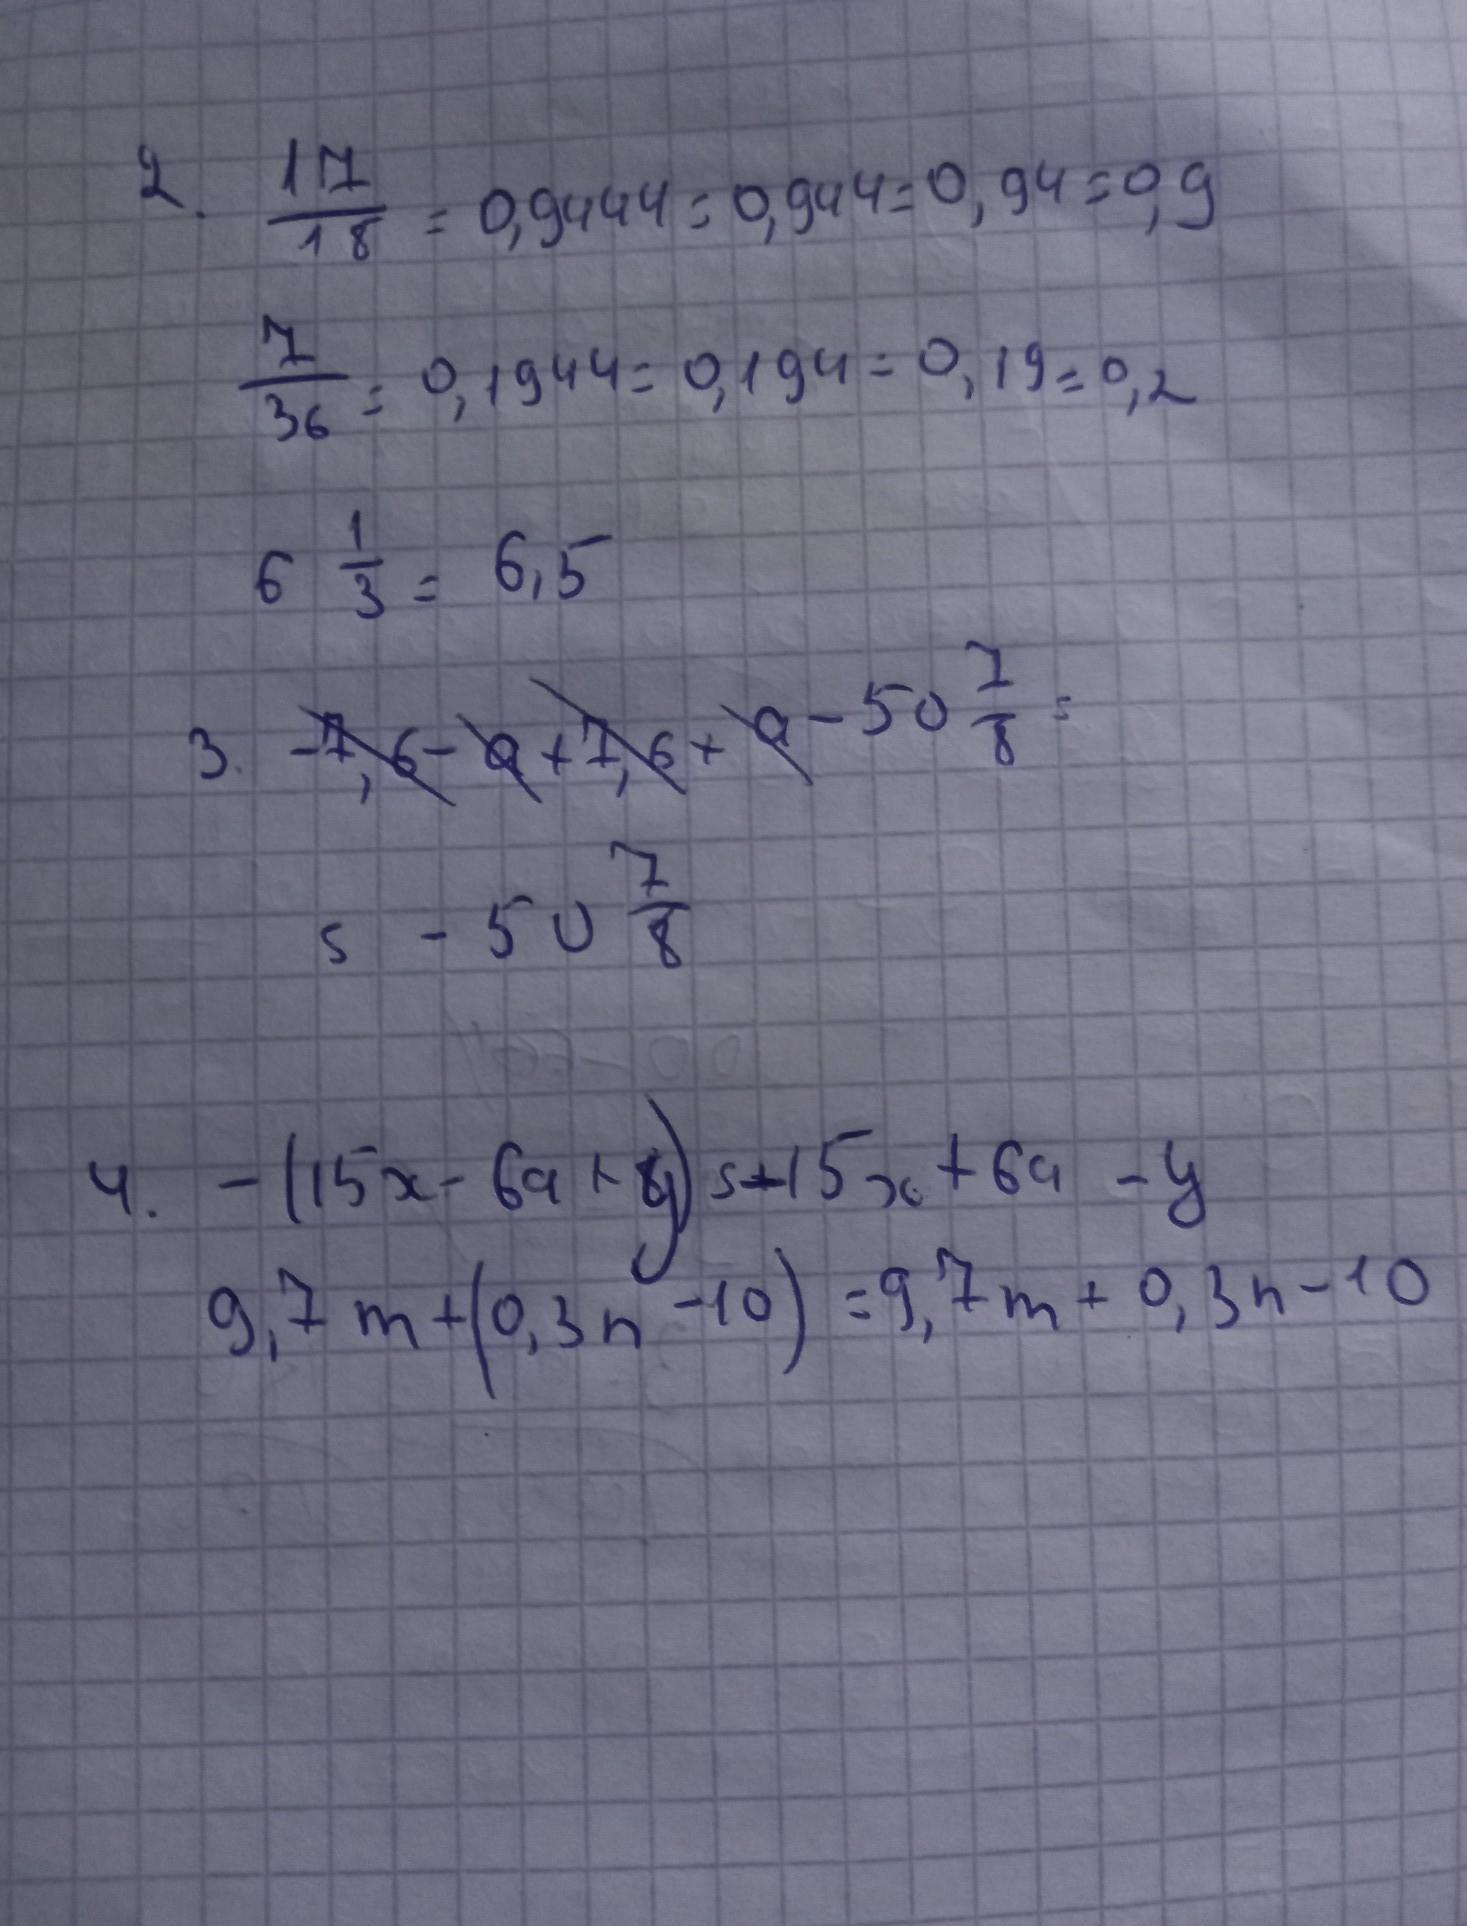 2. 17/18 = 0,9444 = 0,944 = 0,94 = 0,9
7/36 = 0,1944 = 0,194 = 0,19 = 0,2
6 1/3 = 6,5
3. -7,6 - a + 7,6 + a - 50 7/8 =
= - 50 7/8
4. -(15x - 6a + y) = -15x + 6a - y
9,7m + (0,3n - 10) = 9,7m + 0,3n - 10